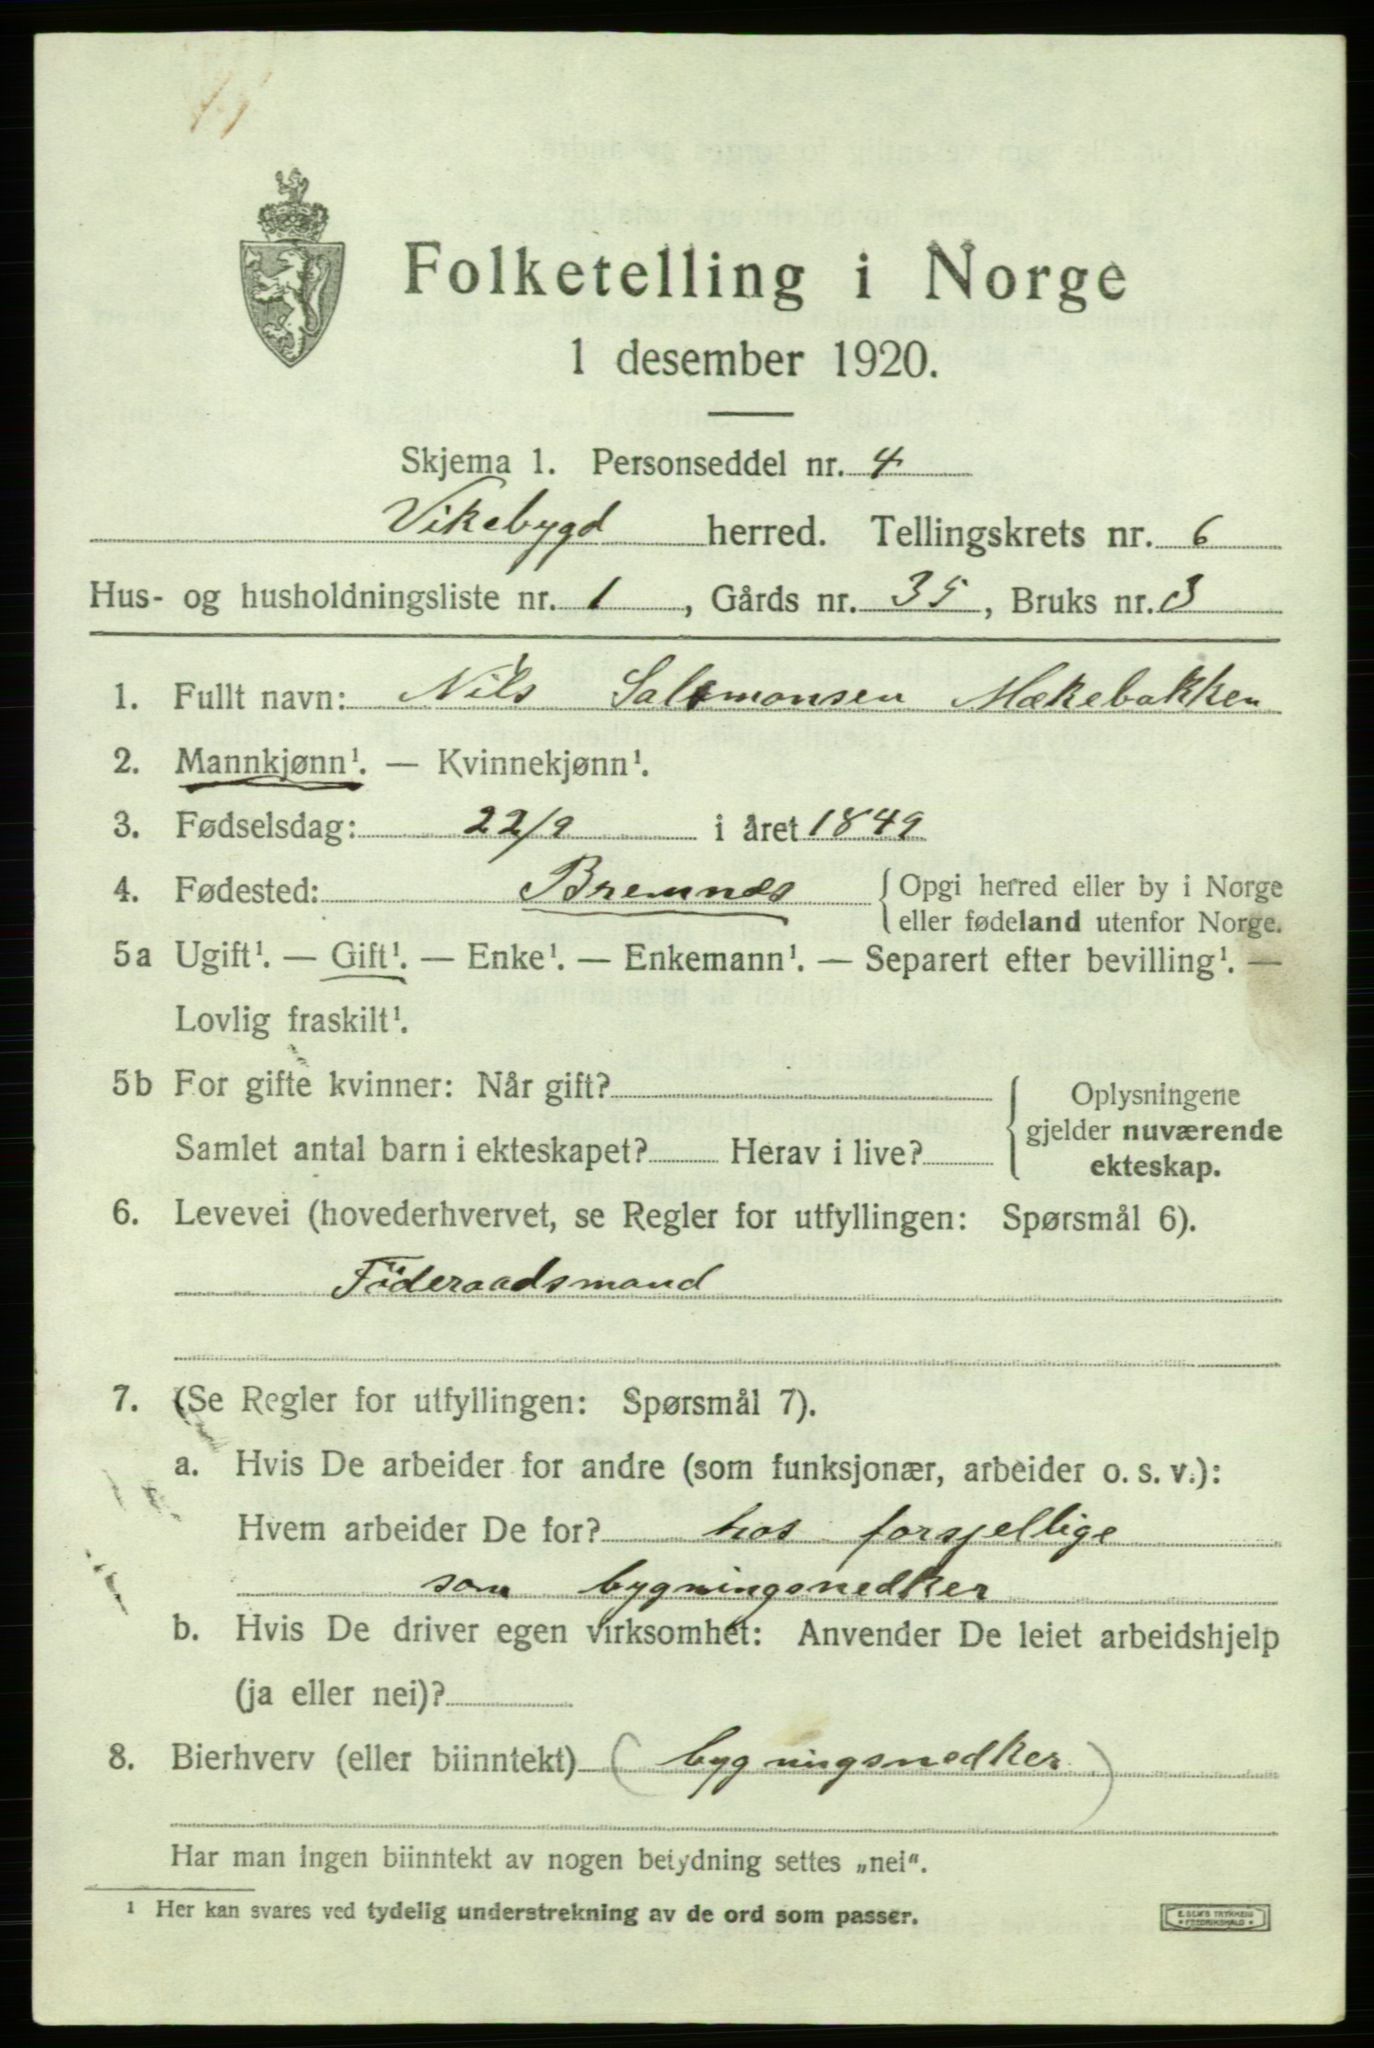 Folketelling i Norge
1 desember 1920.
Skjema 1. Personseddel nr. 4
Vikebygd herred. Tellingskrets nr. 6
Hus- og husholdningsliste nr. 1, Gårds nr. 35, Bruks nr. 3
1. Fullt navn: Nils Salomonsen Mækebakken
2. Mannkjønn¹. — Kvinnekjønn¹.
3. Fødselsdag: 22/9 i året 1849
4. Fødested: Bremnes { Opgi herred eller by i Norge
eller fødeland utenfor Norge.
5a Ugift¹. — Gift¹. — Enke¹. — Enkemann¹. — Separert efter bevilling¹. —
Lovlig fraskilt¹.
5b For gifte kvinner: Når gift?
Samlet antal barn i ekteskapet? Herav i live?
{ Oplysningene
gjelder nuværende
ekteskap.
6. Levevei (hovederhvervet, se Regler for utfyllingen: Spørsmål 6).
Föderaadsmand
7. (Se Regler for utfyllingen: Spørsmål 7).
a. Hvis De arbeider for andre (som funksjonær, arbeider o. s. v.):
Hvem arbeider De for? hos forsjellige
som bygningsnedker
b. Hvis De driver egen virksomhet: Anvender De leiet arbeidshjelp
(ja eller nei)?
8. Bierhverv (eller biinntekt) (bygningsnedker)
Har man ingen biinntekt av nogen betydning settes „nei“.
¹ Her kan svares ved tydelig understrekning av de ord som passer.
E. SEM'S TRYKKERI
• FREDRIKSHALD •